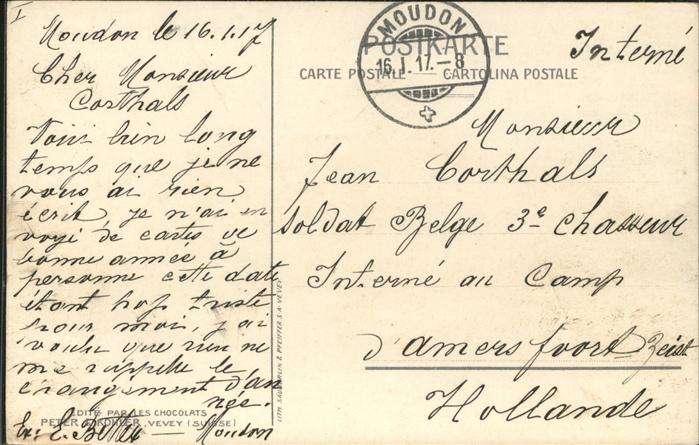 I
Moudon le 16.1.17
Cher Monsieur
Corthals
Voici bien long
temps que je ne
vous ai rien
écrit, je n'ai en
voyé de cartes de
bonne année à
personne cette date
étant trop triste
pour moi, j'ai
voulu que rien ne
me rappelle le
changement d'an
née.
Ex: E.
— Moudon
EDITÉ PAR LES CHOCOLATS
PETER & KOHLER, VEVEY (SUISSE)
LITH. SÄUBERLIN & PFEIFFER S.A. VEVEY
MOUDON
16.I.17.–8
POSTKARTE
CARTE POSTALE — CARTOLINA POSTALE
Interné
Monsieur
Jean Corthals
Soldat Belge 3e Chasseur
Interné au Camp
d'amersfoort Zeist
Hollande